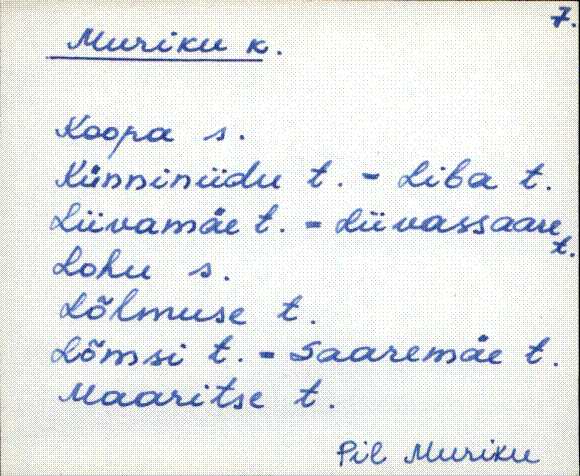 7.
Muriku k.
Koopa s.
Künniniidu t. - Liba t.
Liivamäe t. - Liivassaare t.
Lohu s.
Lõlmuse t.
Lõmsi t. - Saaremäe t.
Maaritse t.
Pil Muriku